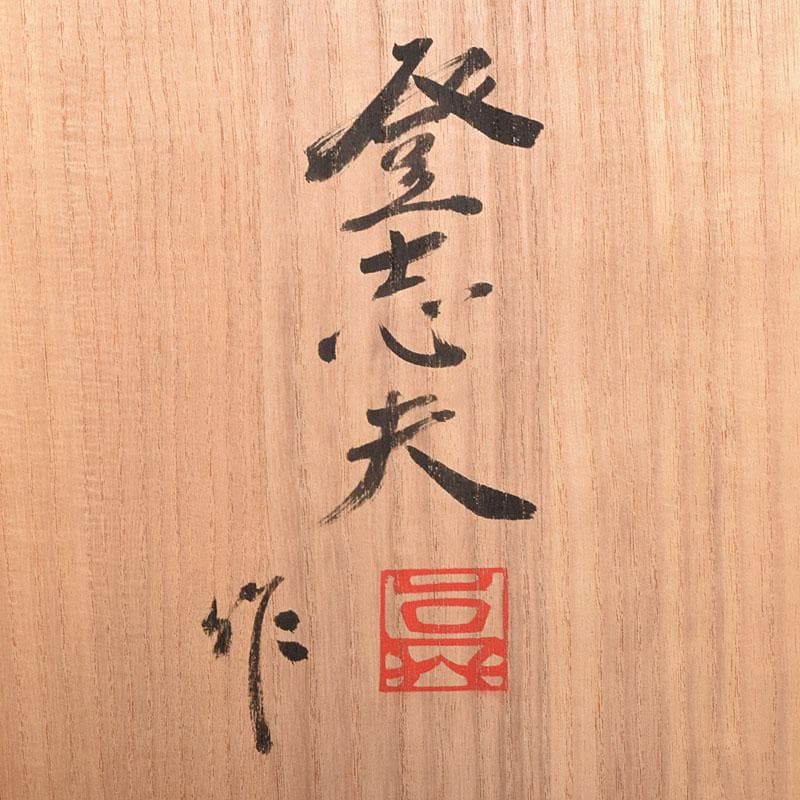 登志夫
作